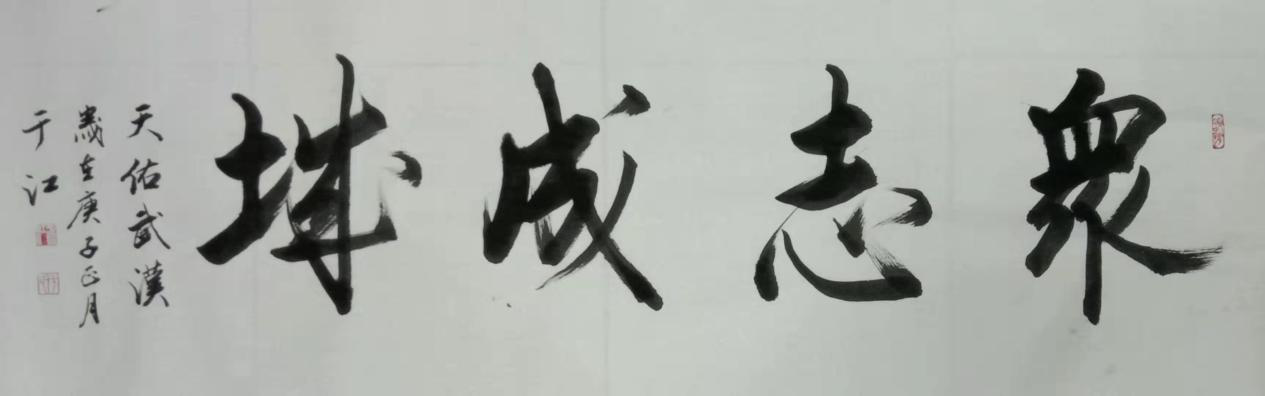 眾志成城
天佑武漢
歲在庚子正月
于江